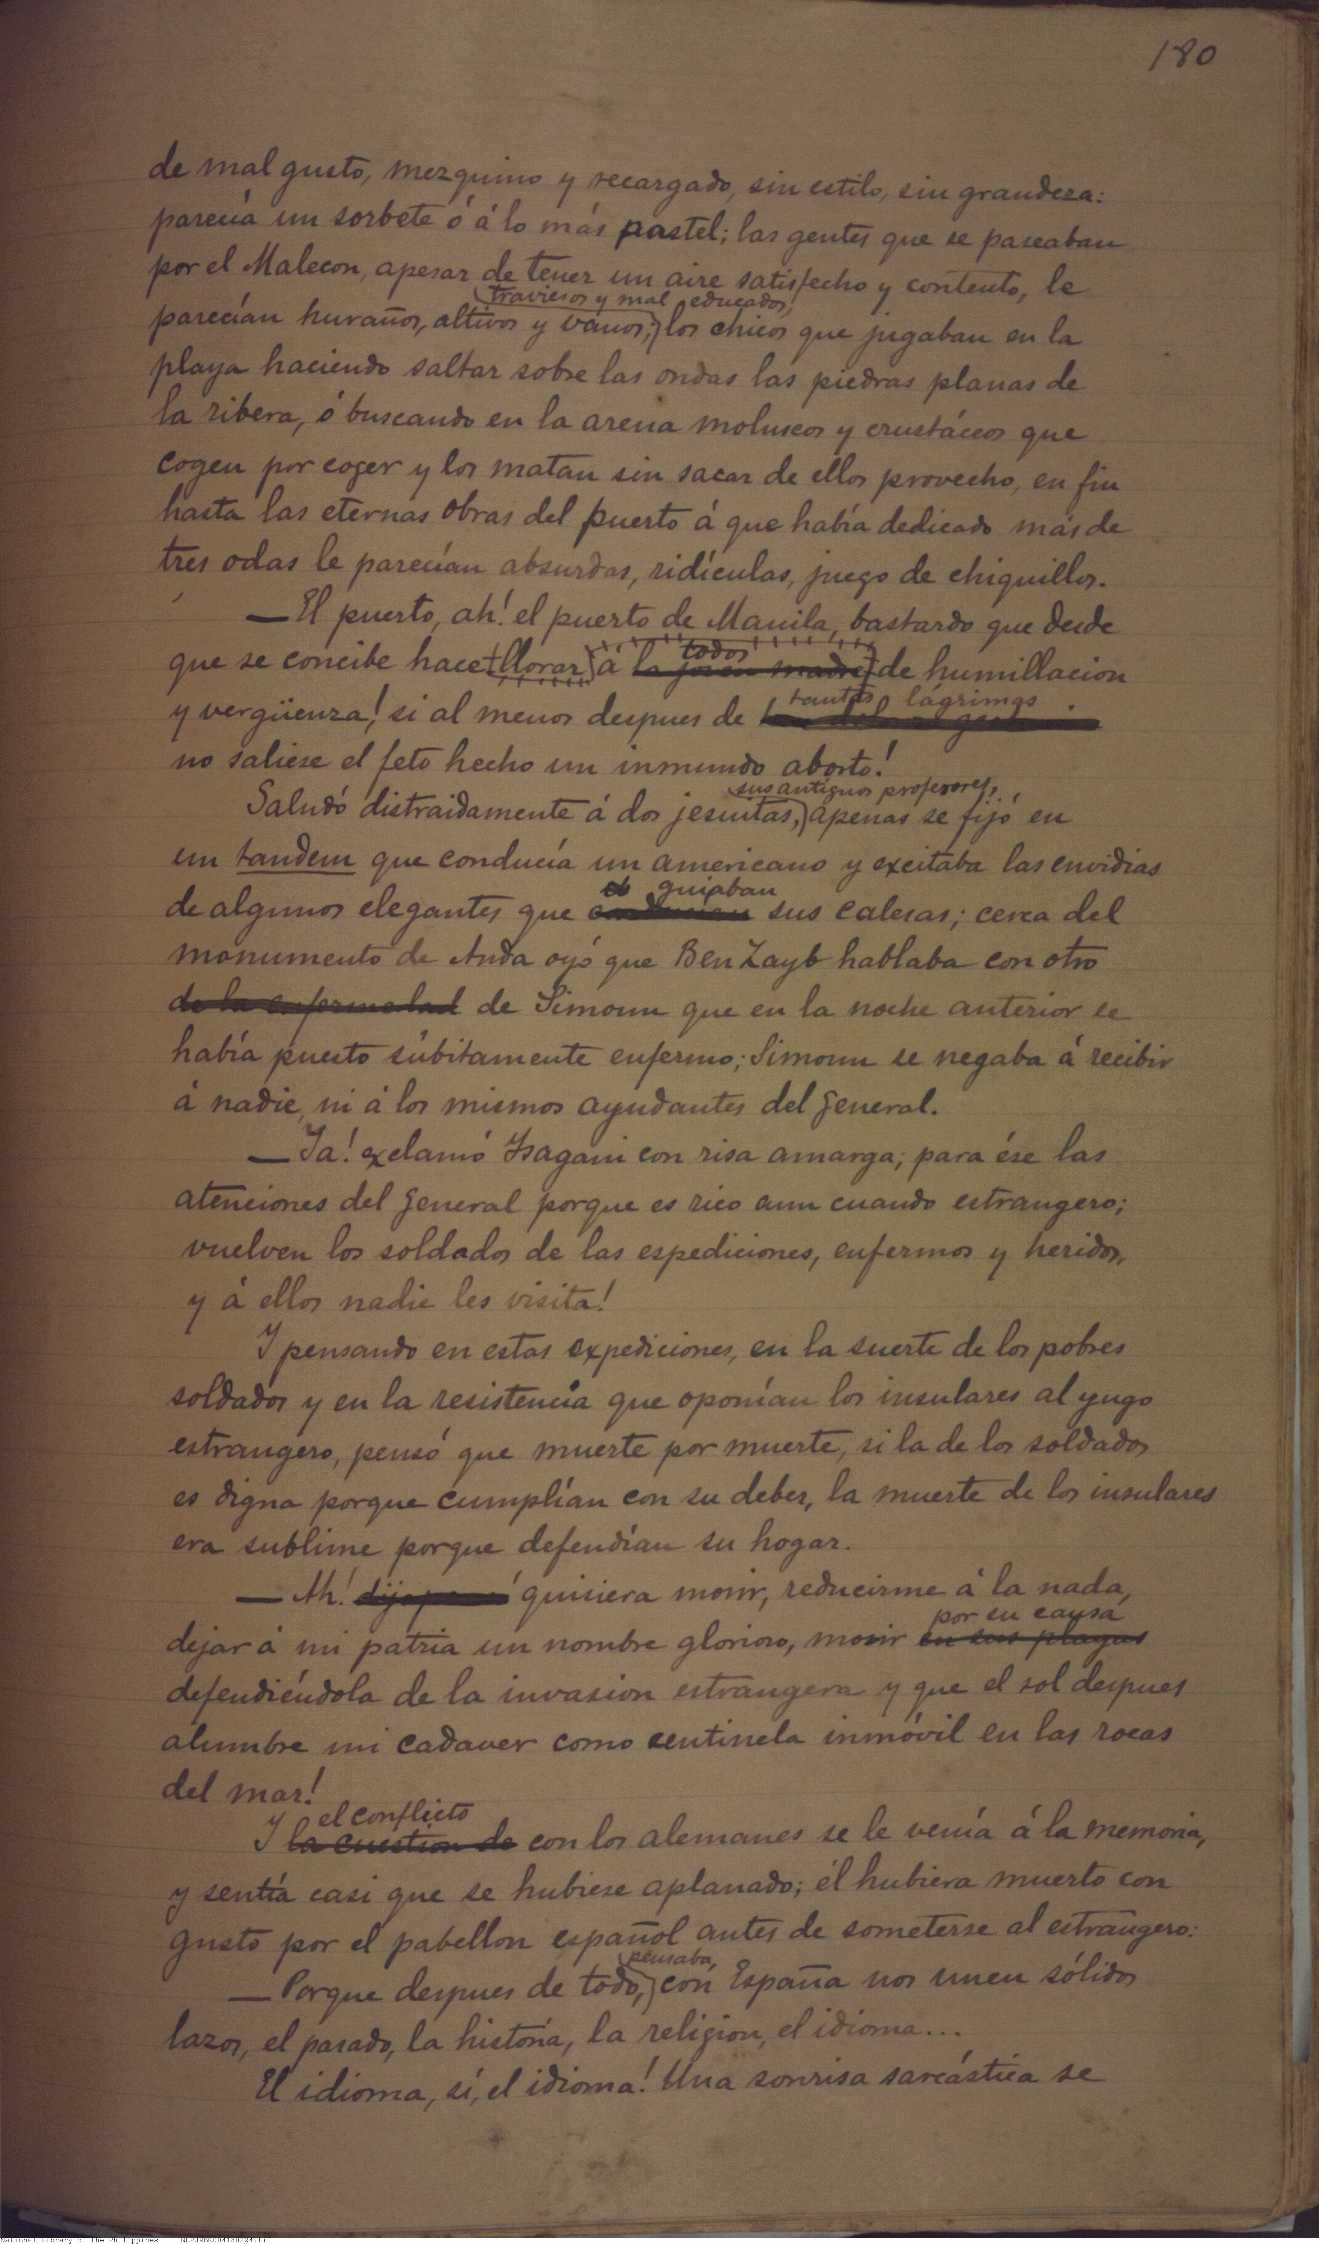 180
de mal gusto, mezquino y recargado, sin estilo, sin grandeza:
parecía un sorbete ó á lo más pastel; las gentes que se paseaban
por el Malecon, apesar de tener un aire satisfecho y contento, le
traviesos y mal educados,
parecían huraños, altivos y vanos; los chicos que jugaban en la
playa haciendo saltar sobre las ondas las piedras planas de
la ribera, ó buscando en la arena moluscos y crustáceos que
cogen por coger y los matan sin sacar de ellos provecho, en fin
hasta las eternas obras del puerto á que había dedicado más de
tres odas le parecían absurdas, ridículas, juego de chiquillos.
— El puerto, ah! el puerto de Manila, bastardo que desde
todos
que se concibe hace llorar á la joven madre de humillacion
tantas lágrimas
y vergüenza! si al menos despues de
no saliese el feto hecho un inmundo aborto!
sus antiguos profesores;
Saludó distraidamente á dos jesuitas, apenas se fijó en
un tandem que conducía un americano y excitaba las envidias
guiaban
de algunos elegantes que conducian sus calesas; cerca del
monumento de Anda oyó que Ben Zayb hablaba con otro
de la enfermedad de Simoun que en la noche anterior se
había puesto súbitamente enfermo; Simoun se negaba á recibir
á nadie, ni á los mismos ayudantes del General.
— Ja! exclamó Isagani con risa amarga; para ése las
atenciones del General porque es rico aun cuando estrangero;
vuelven los soldados de las espediciones, enfermos y heridos,
y á ellos nadie les visita!
Y pensando en estas expediciones, en la suerte de los pobres
soldados y en la resistencia que oponían los insulares al yugo
estrangero, pensó que muerte por muerte, si la de los soldados
es digna porque cumplían con su deber, la muerte de los insulares
era sublime porque defendían su hogar.
— Ah! quisiera morir, reducirme á la nada,
por su causa
dejar á mi patria un nombre glorioso, morir en sus playas
defendiéndola de la invasion estrangera y que el sol despues
alumbre mi cadaver como centinela inmóvil en las rocas
del mar!
el conflicto
Y la cuestion de con los alemanes se le venía á la memoria,
y sentía casi que se hubiese aplanado; él hubiera muerto con
gusto por el pabellon español antes de someterse al estrangero:
pensaba,
— Porque despues de todo, con España nos unen sólidos
lazos, el pasado, la historia, la religion, el idioma...
El idioma, sí, el idioma! Una sonrisa sarcástica se